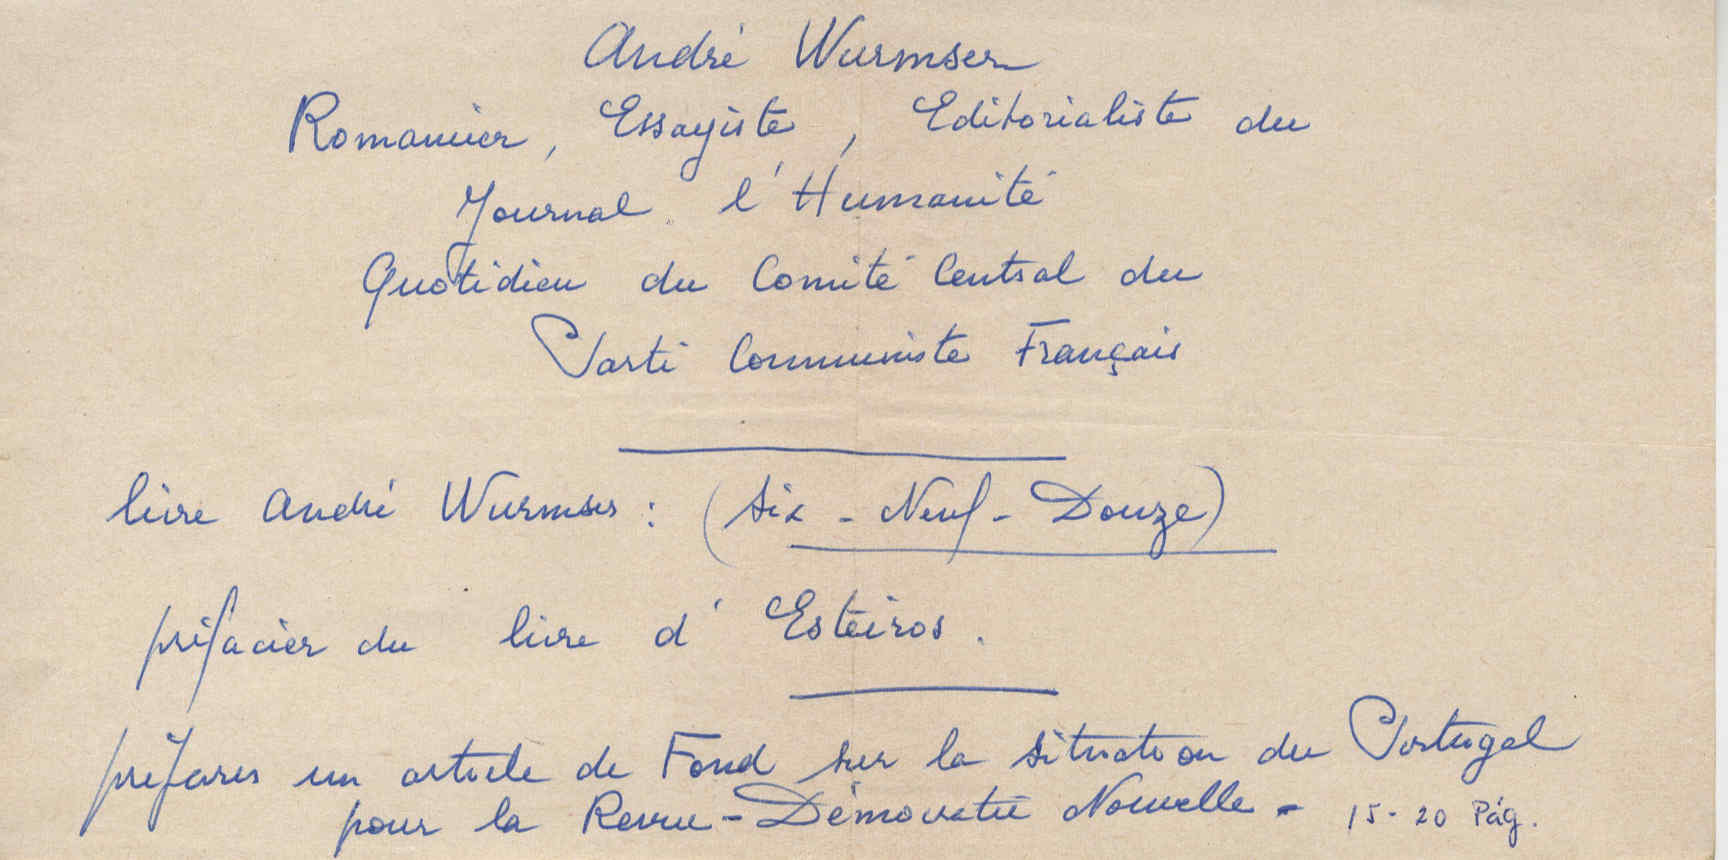 André Wurmser
Romancier, Essayiste, Editorialiste du
Journal l'Humanité
Quotidien du Comité Central du
Parti Communiste Français
livre André Wurmser : (Six - Neuf - Douze)
préfacier du livre d'Esteiros.
préparer un article de Fond sur la situation du Portugal
pour la Revue - Démocratie Nouvelle - 15-20 Pág.